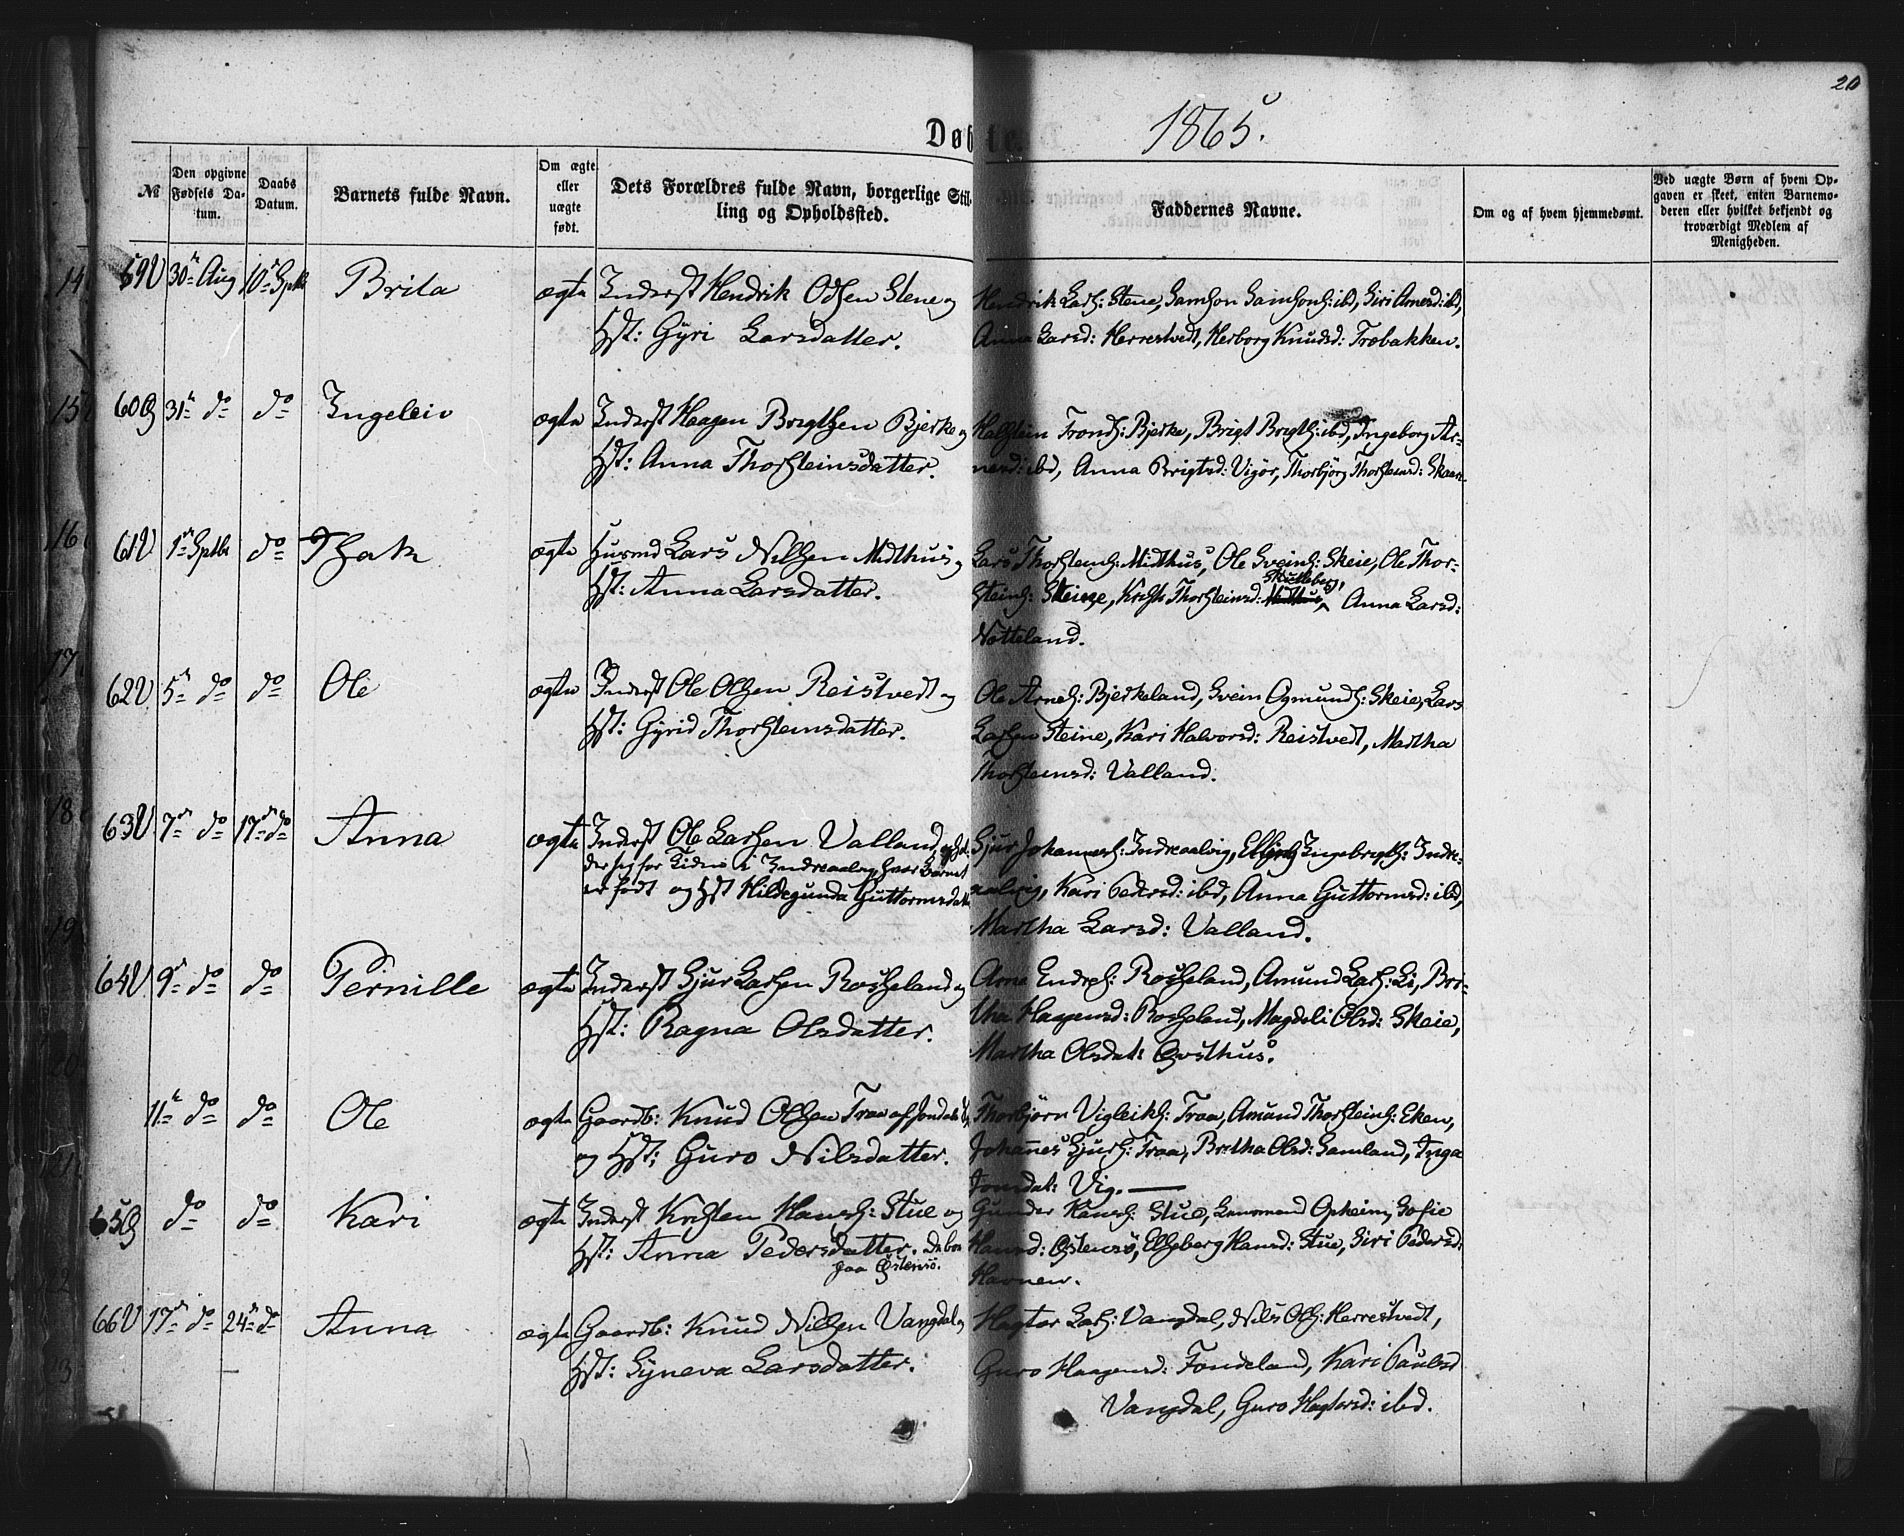 20
Døbte.
1865.
№
Den opgivne Fødsels Datum.
Daabs Datum.
Barnets fulde Navn.
Om ægte eller uægte født.
Dets Forældres fulde Navn, borgerlige Stilling og Opholdssted.
Faddernes Navne.
Om og af hvem hjemmedømt.
Ved uægte Børn af hvem Opgaven er skeet, enten Barnemoderen eller hvilket bekjendt og troværdigt Medlem af Menigheden.
59V 30te Aug 10de Sptbr Brita ægte Inderst Hendrik Odsen Stene og
Hst: Gyri Larsdatter.
Hendrik Larss: Stene, Samson Samsons: ibd, Siri Arnesd: ibd,
Anna Larsd: Herrestvedt, Herborg Knudsd: Træbakken.
60Ø 31te do do Ingeleiv ægte Inderst Haagen Brigtsen Bjerke og
Hst: Anna Thorsteinsdatter.
Halstein Tronds: Bjerke, Brigt Brigts: ibd, Ingeborg Ar-
nesd: ibd, Anna Brigtsd: Vigør, Thorbjørg Thorsteinsd: Skaar.
61V 1ste Sptbr do Isak ægte Husmd Lars Nilsen Midthus og
Hst: Anna Larsdatter.
Lars Thorsteins: Midthus, Ole Sveins: Skeie, Ole Thor-
steins: Steine, Kristi Thorsteinsd: Skutleberg, Anna Larsd:
Notteland.
62V 5te do do Ole ægte Inderst Ole Olsen Reistvedt og
Hst: Gyrid Thorsteinsdatter.
Ole Arnes: Bjerkeland, Svein Ogmunds: Skeie, Lars
Larsen Steine, Kari Halvorsd: Reistvedt, Martha
Thorsteinsd: Valland.
63V 7de do 17de do Anna ægte Inderst Ole Larsen Valland, ophol-
der sig for Tiden i Indreaalvig, hvor Barnet
er født og Hst Hildegunda Guttormsdatt
Sjur Johanness: Indreaalvig, Elling Ingebrigts: Indre-
aalvig, Kari Pedersd: ibd, Anna Guttormsd: ibd,
Martha Larsd: Valland.
64V 9de do do Pernille ægte Inderst Sjur Larsen Rosseland og
Hst: Ragna Olsdatter.
Arne Endres: Rosseland, Amund Lars: Li, Bri-
tha Haagensd: Rosseland, Magdeli Olsd: Skeie,
Martha Olsdat: Øvsthus.
11te do do Ole ægte Gaardb: Knud Olsen Traa af Jondal
og Hst: Guro Nilsdatter.
Thorbjørn Vigleiks: Traa, Amund Thorsteins: Eken,
Johannes Sjurs: Traa, Britha Olsd: Samland, Inga
Jonsdat: Vig.
65Ø do do Kari ægte Inderst Kristen Hanss: Stue og
Hst: Anna Pedersdatter. De bor
paa Østensø.
Gunder Hanss: Stue, Lensmand Opheim, Sofie
Hansd: Østensø, Elseberg Hansd: Stue, Siri Pedersd:
Havnen.
66V 17de do 24de do Anna ægte Gaardb: Knud Nilsen Vangdal og
Hst: Synneva Larsdatter.
Hagtor Lars: Vangdal, Nils Ols: Herrestvedt,
Guro Haagensd: Fondeland, Kari Paulsd
Vangdal, Guro Hagtorsd: ibd.